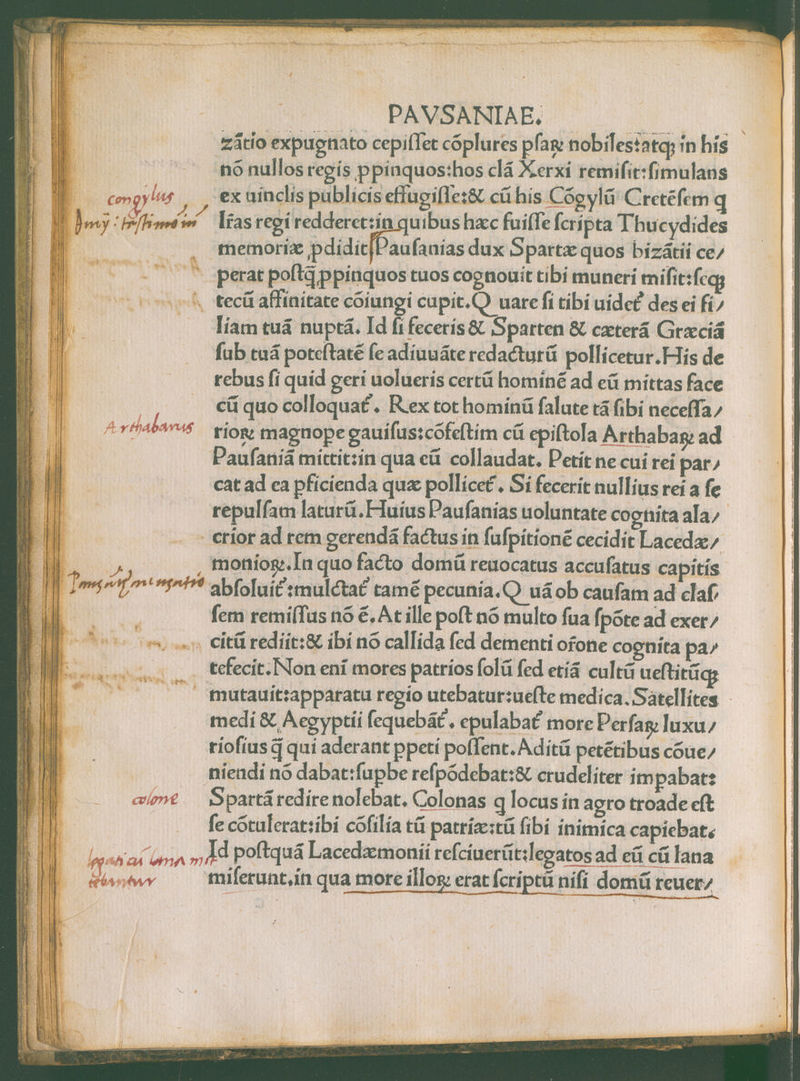 PAVSANIAE.
zātio expugnato cepiſſet cōplures pſaꝝ nobiles:atq; in his
nō nullos regis ꝓpinquos:hos clā Xerxi remiſit:ſimulans
congylus
ex uinclis publicis effugiſſe:& cū his Cōgylū Cretēſem q
lr̄as regi redderet:in quibus hæc fuiſſe ſcripta Thucydides
memoriæ ꝓdidit Pauſanias dux Spartæ quos bizātii ce/
perat poſtq̄ ꝓpinquos tuos cognouit tibi muneri miſit:ſeq;
tecū affinitate cōiungi cupit.Q uare ſi tibi uidet᷑ des ei fi/
liam tuā nuptā. Id ſi feceris & Sparten & cæterā Græciā
ſub tuā poteſtatē ſe adiuuāte redacturū pollicetur.His de
rebus ſi quid geri uolueris certū hominē ad eū mittas face
cū quo colloquat᷑. Rex tot hominū ſalute tā ſibi neceſſa/
Arthabarus
rioꝝ magnope gauiſus:cōfeſtim cū epiſtola Arthabaꝝ ad
Pauſaniā mittit:in qua eū collaudat. Petit ne cui rei par/
cat ad ea pficienda quæ pollicet᷑. Si fecerit nullius rei a ſe
repulſam laturū.Huius Pauſanias uoluntate cognita ala/
crior ad rem gerendā factus in ſuſpitionē cecidit Lacedæ/
monioꝝ.In quo facto domū reuocatus accuſatus capitis
abſoluit᷑:mulctat᷑ tamē pecunia.Q uā ob cauſam ad claſ/
ſem remiſſus nō ē.At ille poſt nō multo ſua ſpōte ad exer/
citū rediit:& ibi nō callida ſed dementi or̄one cognita pa/
tefecit.Non eni mores patrios ſolū ſed etiā cultū ueſtitūq;
mutauit:apparatu regio utebatur:ueſte medica.Satellites
medi & Aegyptii ſequebāt᷑. epulabat᷑ more Perſaꝝ luxu/
rioſius q̄ qui aderant ppeti poſſent.Aditū petētibus cōue/
niendi nō dabat:ſupbe reſpōdebat:& crudeliter impabat:
colone
Spartā redire nolebat. Colonas q locus in agro troade eſt
ſe cōtulerat:ibi cōſilia tū patriæ:tū ſibi inimica capiebat.
Id poſtquā Lacedæmonii reſciuerūt:legatos ad eū cū lana
miſerunt.in qua more illoꝝ erat ſcriptū niſi domū reuer/